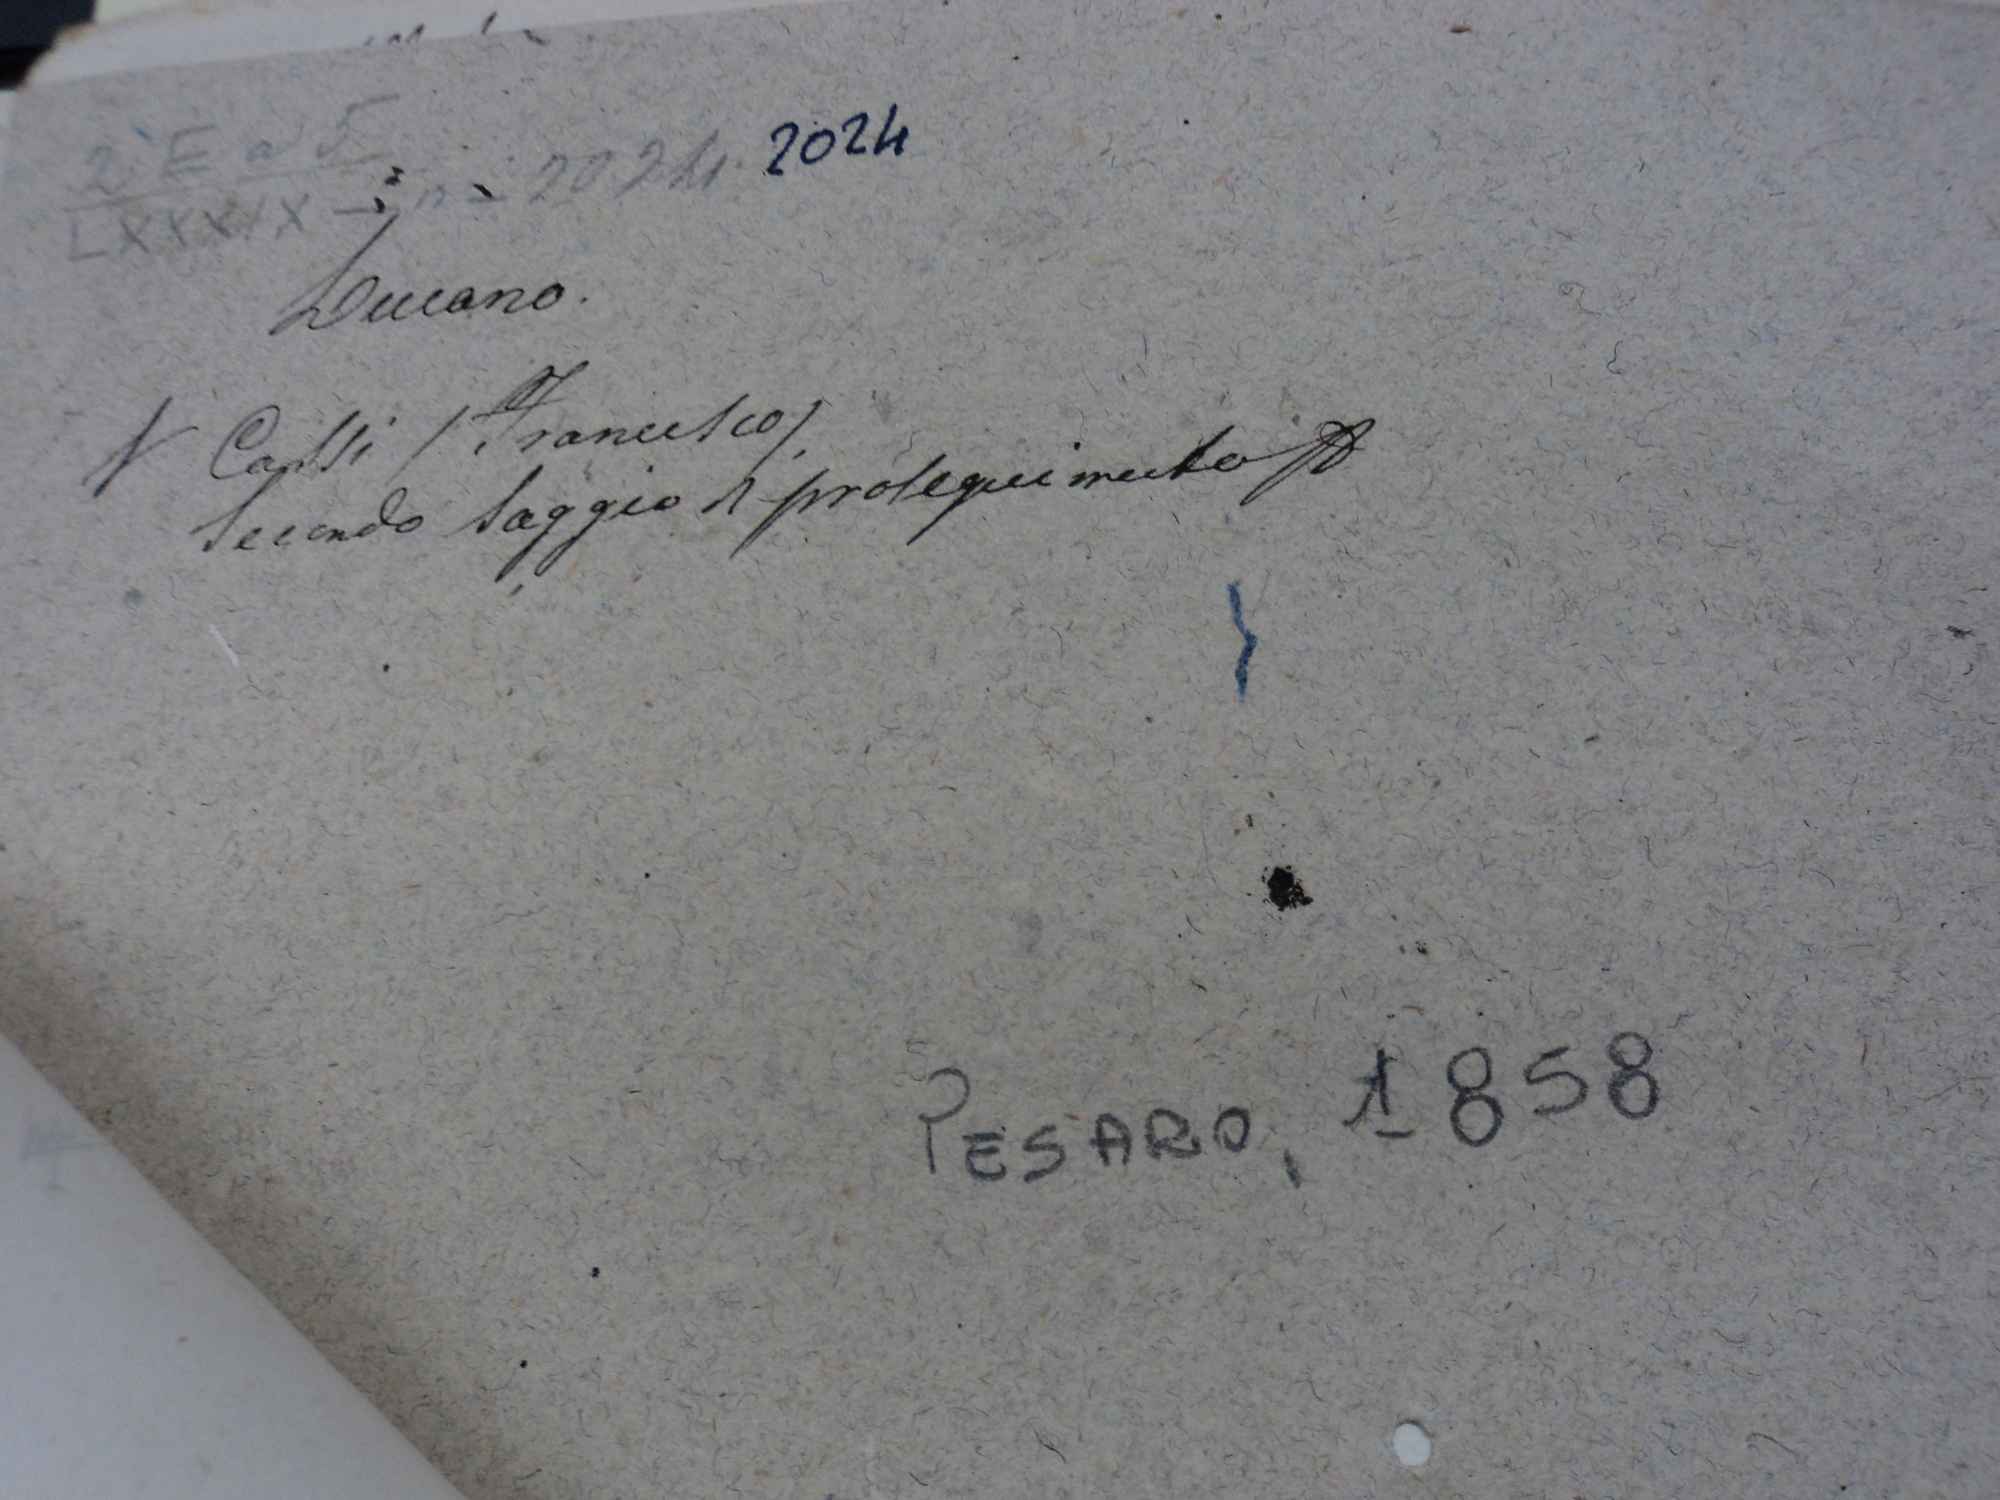 2ª E a 5
LXXXIX - i n= 2024 2024
Lucano.
Cassi (Francesco)
Secondo Saggio di proseguimento
PESARO, 1858